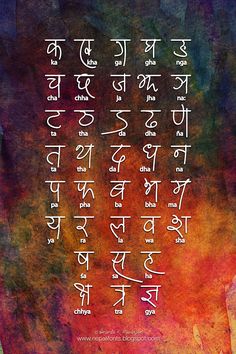 क ख ग घ ङ
ka kha ga gha nga
च छ ज झ ञ
cha chha ja jha na:
ट ठ ड ढ ण
ta tha da dha ña
त थ द ध न
ta tha da dha na
प फ ब भ म
pa pha ba bha ma
य र ल व श
ya ra la wa sha
ष स ह
sa sa ha
क्ष त्र ज्ञ
chhya tra gya
www.nepalifonts.blogspot.com